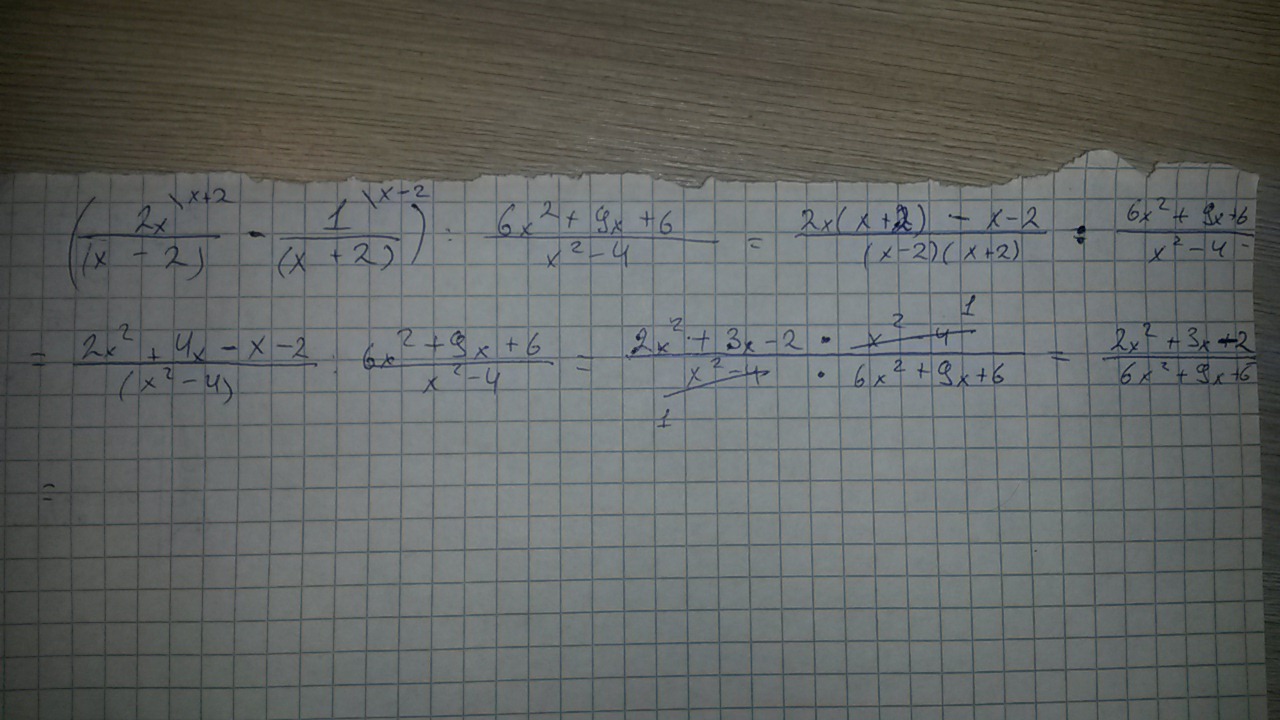 (2x\x+2/(x - 2) - 1\x-2/(x + 2)) : 6x² + 9x + 6/x² - 4 = 2x(x + 2) - x - 2/(x - 2)(x + 2) : 6x² + 9x + 6/x² - 4 =
= 2x² + 4x - x - 2/(x² - 4) : 6x² + 9x + 6/x² - 4 = 2x² + 3x - 2/x² - 4 1 · x² - 4 1/6x² + 9x + 6 = 2x² + 3x + 2/6x² + 9x + 6
=